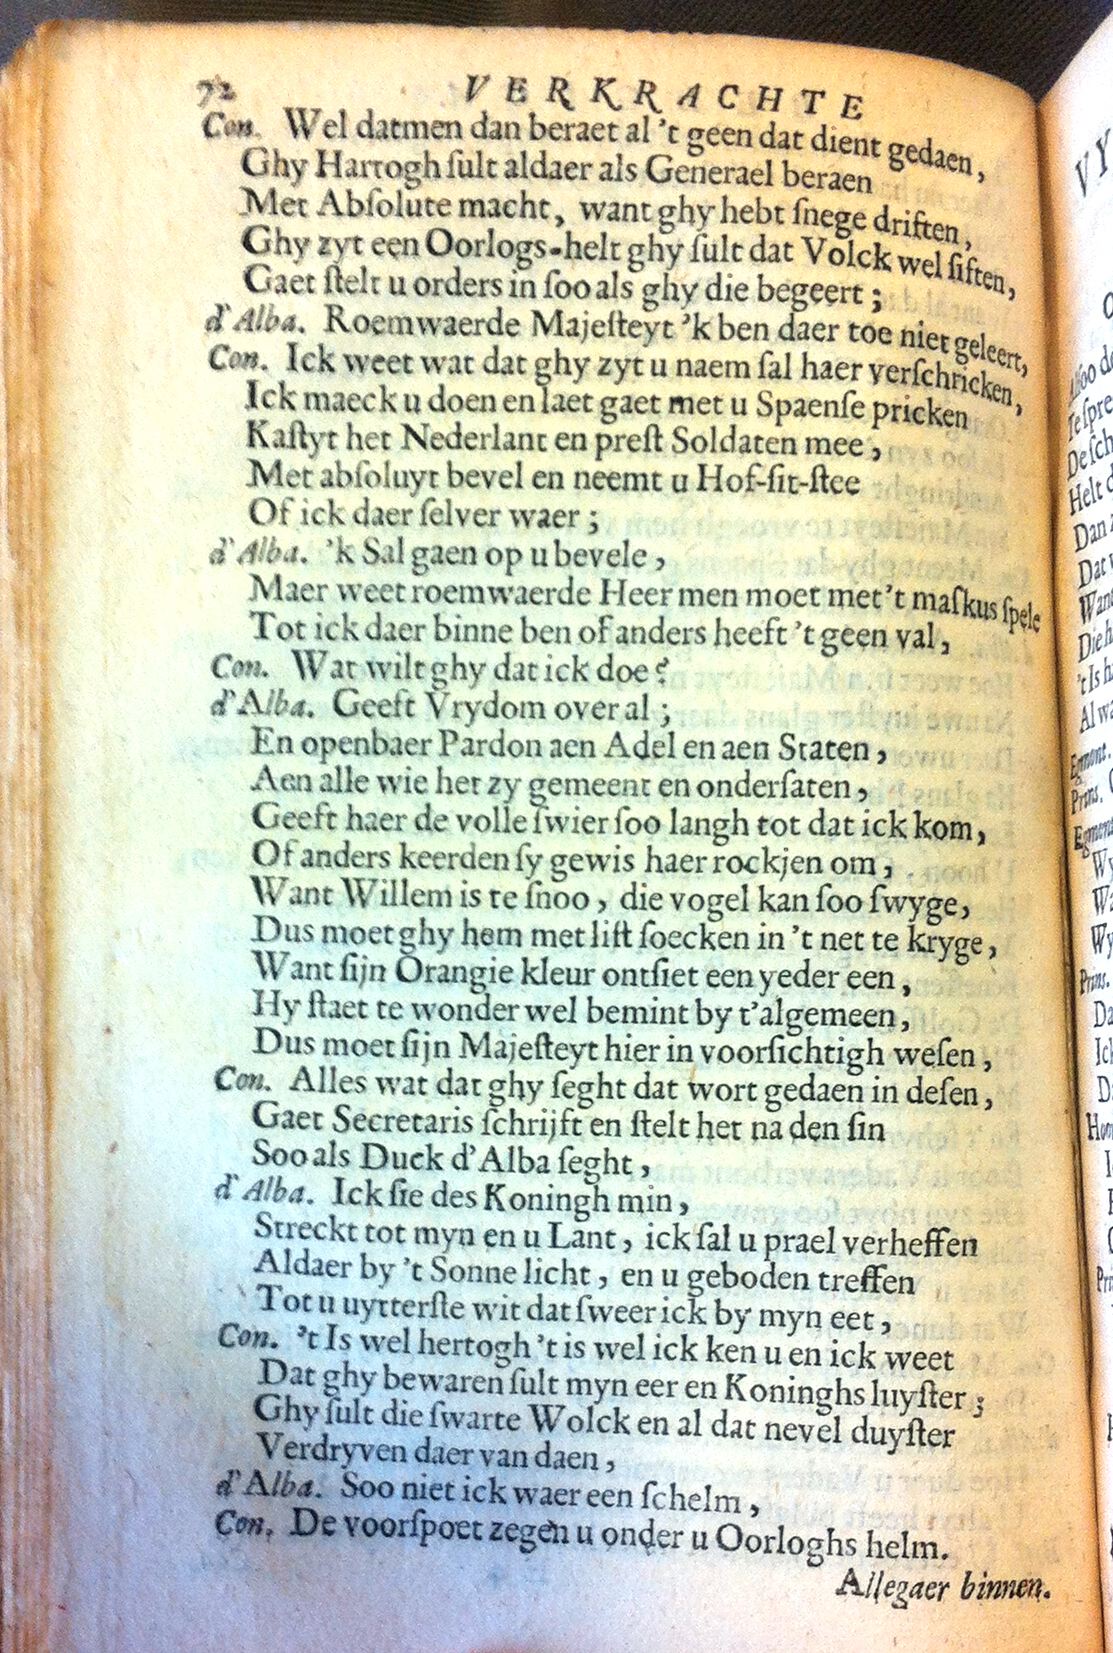 72 VERKRACHTE
Con. Wel datmen dan beraet al 't geen dat dient gedaen,
Ghy Hartogh ſult aldaer als Generael beraen
Met Abſolute macht, want ghy hebt ſnege driften,
Ghy zyt een Oorlogs-helt ghy ſult dat Volck wel ſiften,
Gaet ſtelt u orders in ſoo als ghy die begeert;
d'Alba. Roemwaerde Majeſteyt 'k ben daer toe niet geleert,
Con. Ick weet wat dat ghy zyt u naem ſal haer verſchricken,
Ick maeck u doen en laet gaet met u Spaenſe pricken
Kaſtyt het Nederlant en preſt Soldaten mee,
Met abſoluyt bevel en neemt u Hof-ſit-ſtee
Of ick daer ſelver waer;
d'Alba. 'k Sal gaen op u bevele,
Maer weet roemwaerde Heer men moet met 't maſkus ſpele
Tot ick daer binne ben of anders heeft 't geen val,
Con. Wat wilt ghy dat ick doe?
d'Alba. Geeft Vrydom over al;
En openbaer Pardon aen Adel en aen Staten,
Aen alle wie het zy gemeent en onderſaten,
Geeft haer de volle ſwier ſoo langh tot dat ick kom,
Of anders keerden ſy gewis haer rockjen om,
Want Willem is te ſnoo, die vogel kan ſoo ſwyge,
Dus moet ghy hem met liſt ſoecken in 't net te kryge,
Want ſijn Orangie kleur ontſiet een yeder een,
Hy ſtaet te wonder wel bemint by t'algemeen,
Dus moet ſijn Majeſteyt hier in voorſichtigh weſen,
Con. Alles wat dat ghy ſeght dat wort gedaen in deſen,
Gaet Secretaris ſchrijft en ſtelt het na den ſin
Soo als Duck d'Alba ſeght,
d'Alba. Ick ſie des Koningh min,
Streckt tot myn en u Lant, ick ſal u prael verheffen
Aldaer by 't Sonne licht, en u geboden treffen
Tot u uytterſte wit dat ſweer ick by myn eet,
Con. 't Is wel hertogh 't is wel ick ken u en ick weet
Dat ghy bewaren ſult myn eer en Koninghs luyſter;
Ghy ſult die ſwarte Wolck en al dat nevel duyſter
Verdryven daer van daen,
d'Alba. Soo niet ick waer een ſchelm,
Con. De voorſpoet zegen u onder u Oorloghs helm.
Allegaer binnen.